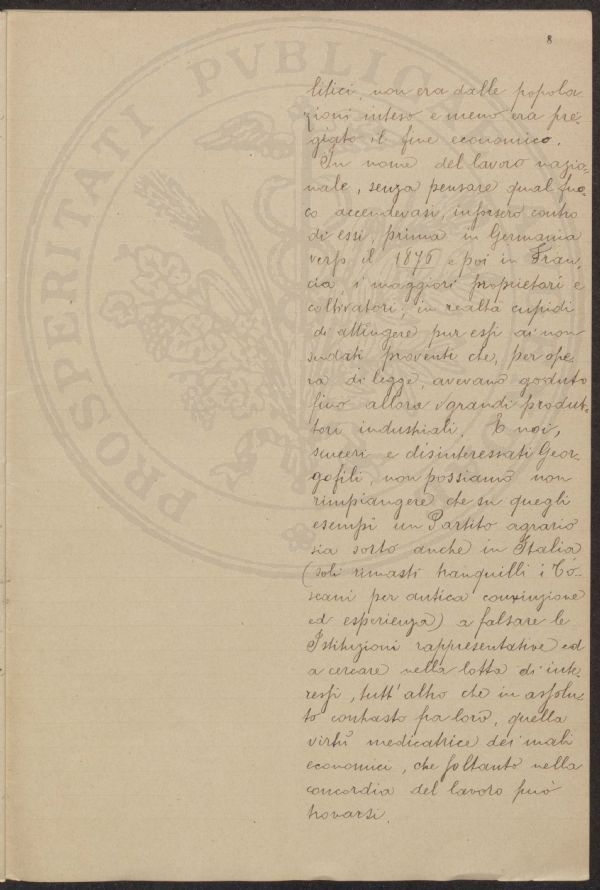 8
litici, non era dalle popola
zioni inteso e meno era pre-
giato il fine economico.
In nome del lavoro nazio-
nale, senza pensare qual fuo-
co accendevasi, insorsero contro
di essi, prima in Germania
verso il 1876 e poi in Fran,
cia, i maggiori proprietari e
coltivatori, in realtà cupidi
di attingere pur essi ai non
sudati proventi che, per ope-
ra di legge, avevano goduto
fino allora i grandi produt-
tori industriali. E noi,
sinceri e disinteressati Geor-
gofili, non possiamo non
rimpiangere che su quegli
esempi un Partito agrario
sia sorto anche in Italia
(soli rimasti tranquilli i To-
scani per antica convinzione
ed esperienza) a falsare le
Istituzioni rappresentative ed
a cercare nella lotta di inte-
ressi, tutt'altro che in assolu-
to contrasto fra loro, quella
virtù medicatrice dei mali
economici, che soltanto nella
concordia del lavoro può
trovarsi.
PROSPERITATI PVBLICA